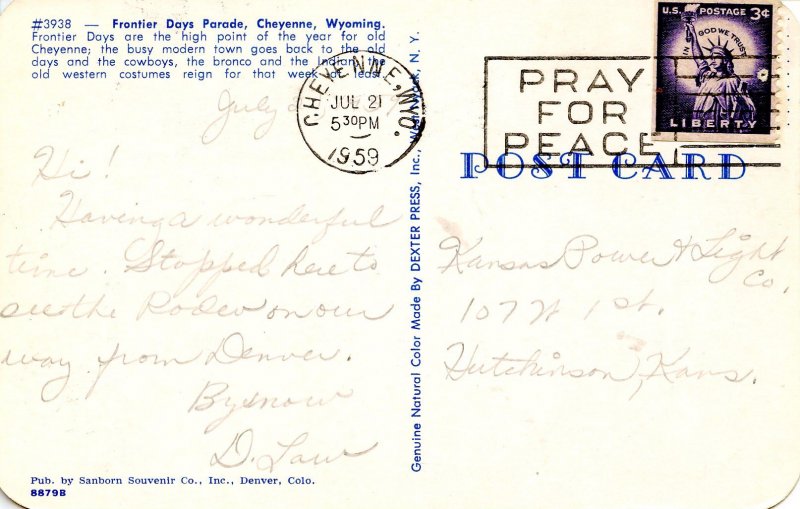 #3938 — Frontier Days Parade, Cheyenne, Wyoming.
Frontier Days are the high point of the year for old
Cheyenne; the busy modern town goes back to the old
days and the cowboys, the bronco and the Indian, the
old western costumes reign for that week at least.
July
Hi!
Having a wonderful
time. Stopped here to
see the Rodeo on our
way from Denver.
Bye now
D. Law
Pub. by Sanborn Souvenir Co., Inc., Denver, Colo.
8879B
Genuine Natural Color Made By DEXTER PRESS, Inc., West Nyack, N. Y.
CHEYENNE, WYO.
JUL 21
530PM
1959
PRAY
FOR
PEACE
U.S. POSTAGE 3¢
IN GOD WE TRUST
LIBERTY
POST CARD
Kansas Power & Light
Co.
107 W 1st.
Hutchinson, Kans.